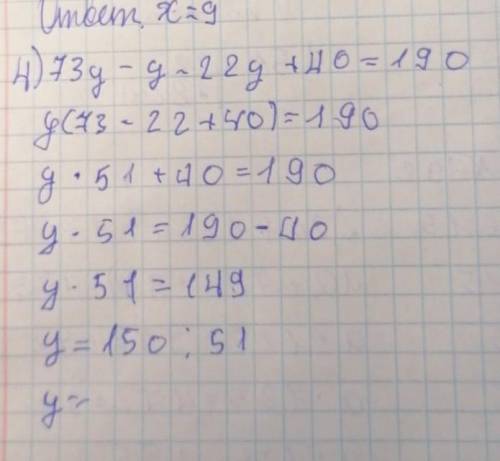 Ответ x=9
4) 73y - y - 22y + 40 = 190
y(73 - 22 + 40) = 190
y · 51 + 40 = 190
y · 51 = 190 - 40
y · 51 = 149
y = 150 : 51
y =